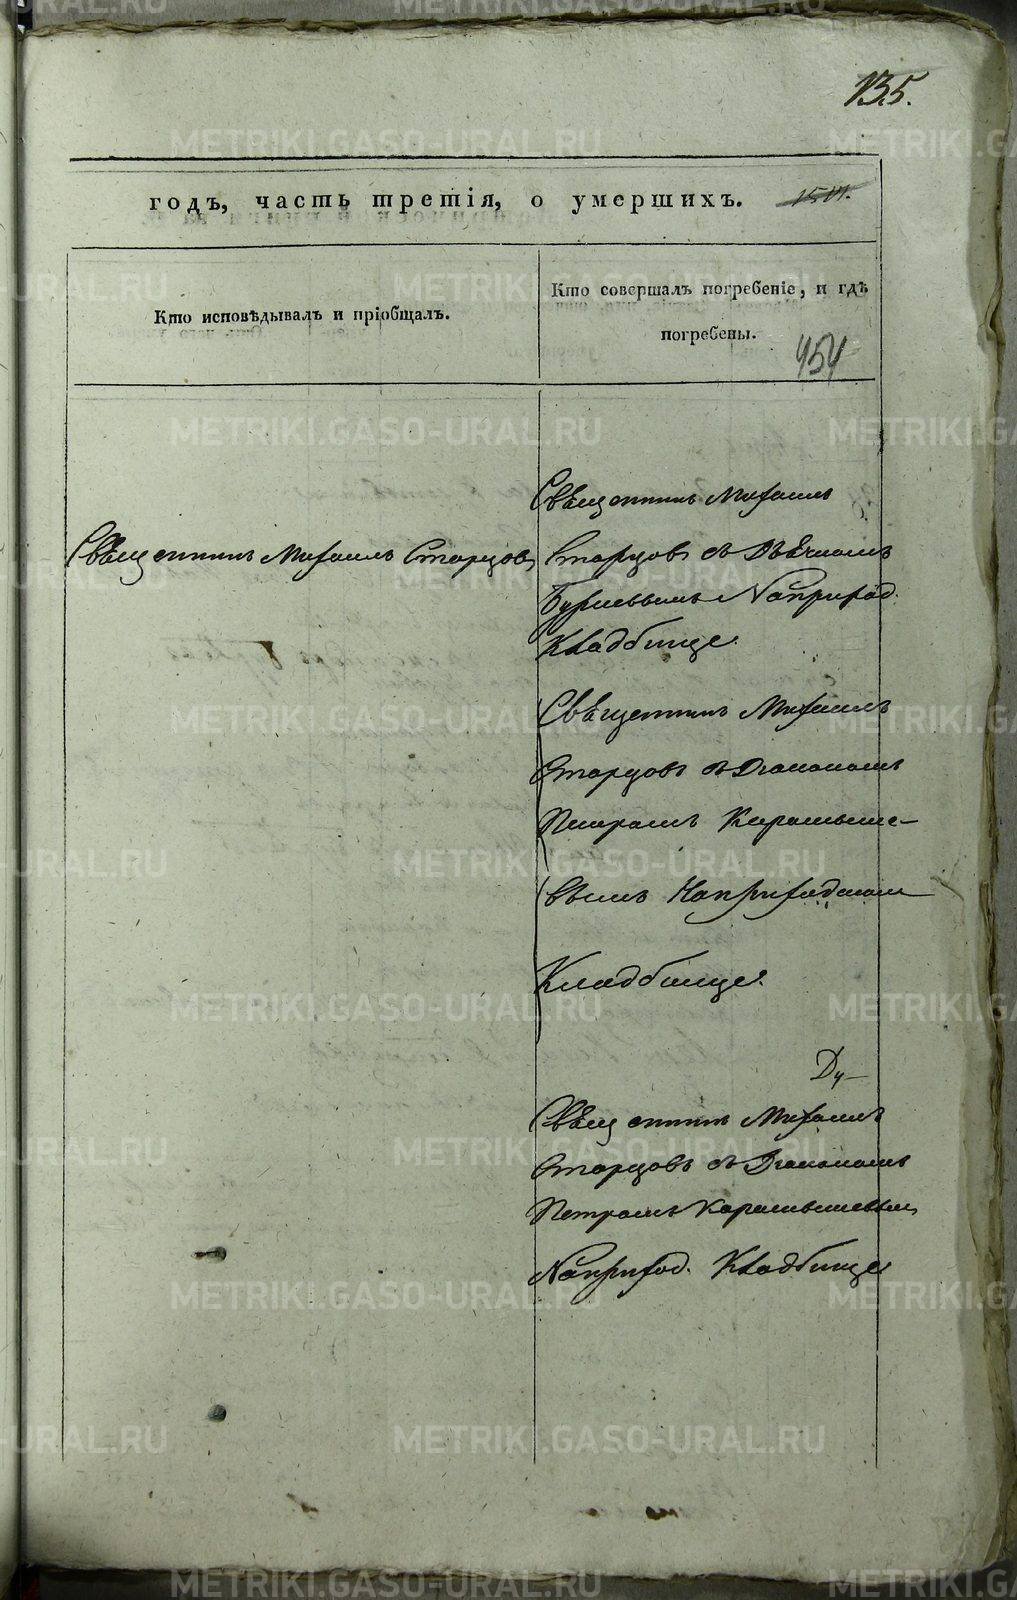 135.
годъ, часть третія, о умершихъ.
Кто исповѣдывалъ и пріобщалъ.
Кто совершалъ погребеніе, и гдѣ
погребены.
454
Священникъ Михаилъ Старцовъ
Священникъ Михаилъ
Старцовъ съ Дьячкомъ
Наприход.
Кладбище.
Священникъ Михаилъ
Старцовъ съ Діакономъ
Петромъ Карамыше-
вымъ Наприходском
Кладбище.
Ду-
Священникъ Михаилъ
Старцовъ съ Діакономъ
Петромъ Карамышевым
Наприход. Кладбище
METRIKI.GASO-URAL.RU